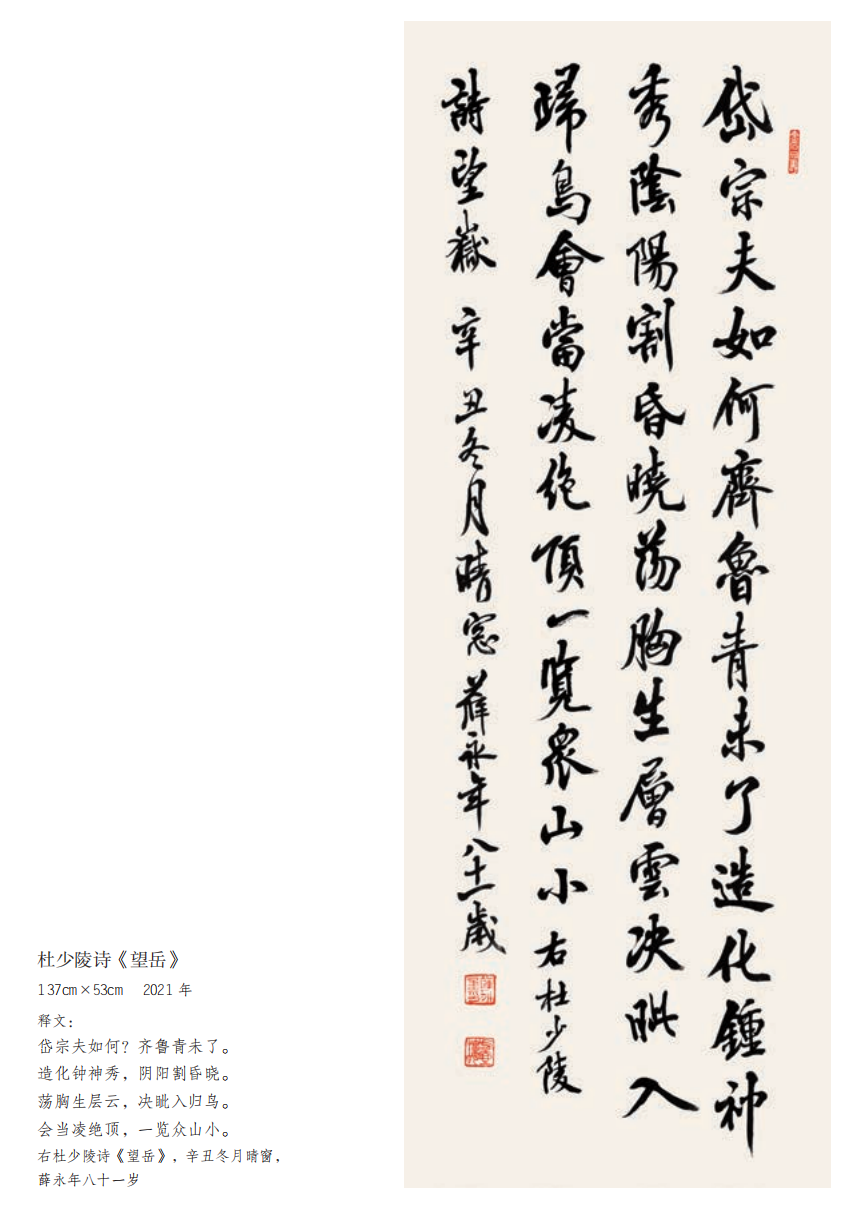 岱宗夫如何齊魯青未了造化鍾神
秀陰陽割昏曉蕩胸生層雲决眦入
歸鳥會當凌絶頂一覽衆山小右杜少陵
詩望嶽 辛丑冬月晴窓薛永年八十一歲
杜少陵诗《望岳》
137cm×53cm 2021 年
释文：
岱宗夫如何？齐鲁青未了。
造化钟神秀，阴阳割昏晓。
荡胸生层云，决眦入归鸟。
会当凌绝顶，一览众山小。
右杜少陵诗《望岳》，辛丑冬月晴窗，
薛永年八十一岁